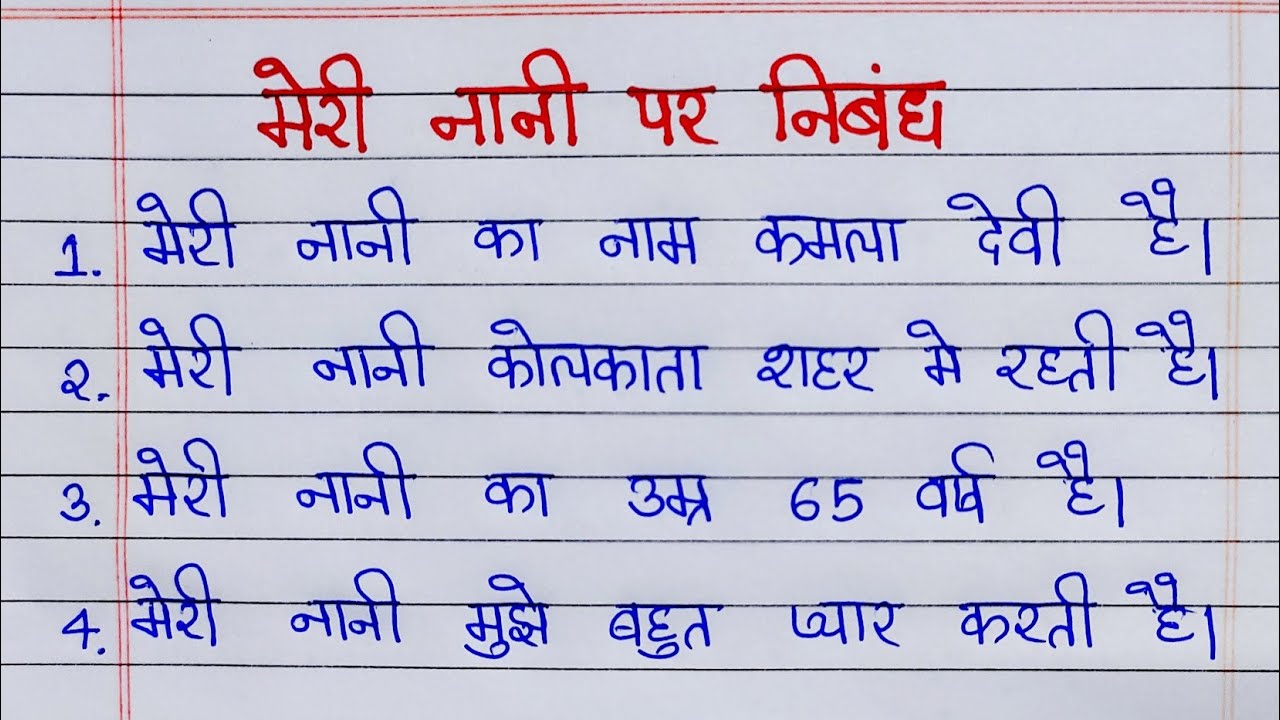 मेरी नानी पर निबंध
1. मेरी नानी का नाम कमला देवी है।
2. मेरी नानी कोलकाता शहर मे रहती है।
3. मेरी नानी का उम्र 65 वर्ष है।
4. मेरी नानी मुझे बहुत प्यार करती है।